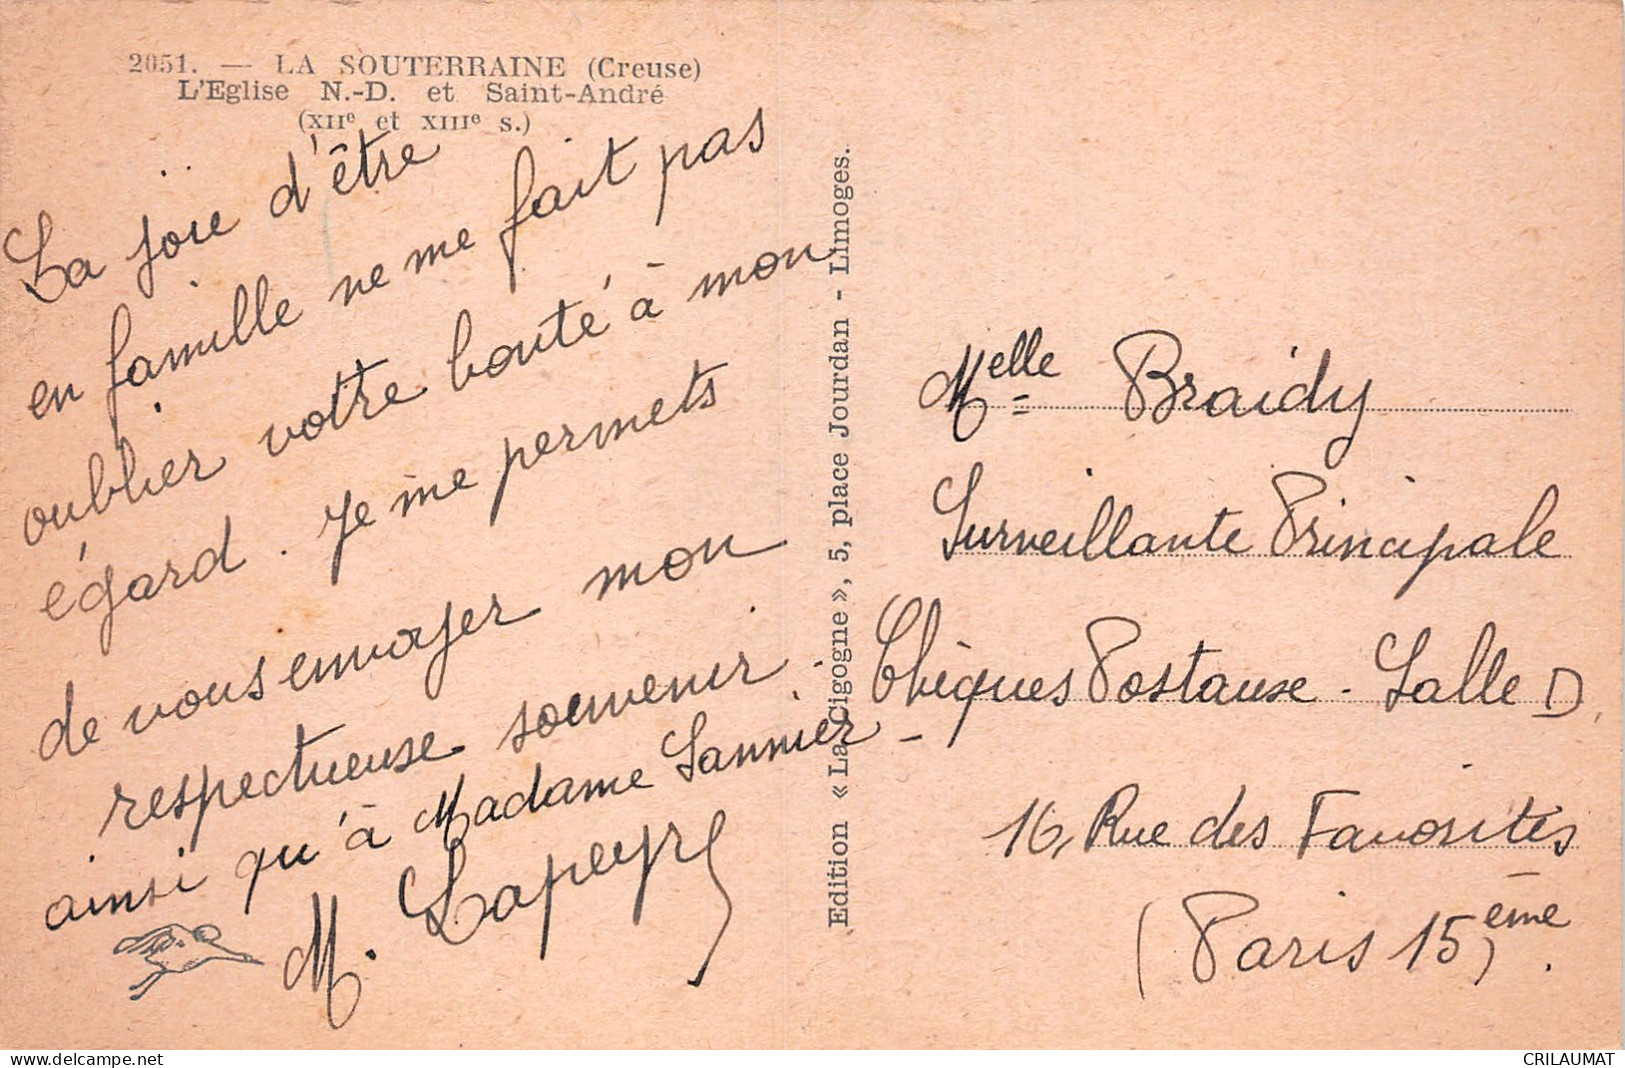 2051. — LA SOUTERRAINE (Creuse)
L'Eglise N.-D. et Saint-André
(XIIe et XIIIe s.)
La joie d'être
en famille ne me fait pas
oublier votre bonté à mon
égard. Je me permets
de vous envoyer mon
respectueuse souvenir
ainsi qu'à Madame Sannier -
M. Lapeyre
Edition « La Cigogne », 5, place Jourdan - Limoges.
Melle Braidy
Surveillante Principale
Chèques Postause - Salle D,
16, Rue des Favorites
(Paris 15ème).
delcampe.net
CRILAUMAT